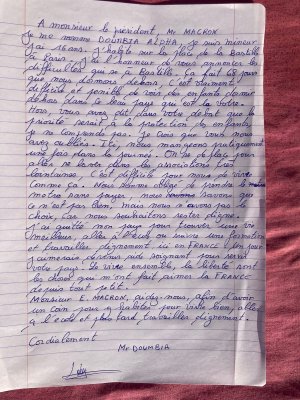 A monsieur le président, Mr MACRON
Je me nomme DOUMBIA ALPHA, je suis mineur
j'ai 16 ans. J'habite sur la place de la Bastille
à Paris. J'ai l'honneur de vous annoncer les
difficultés qui se à Bastille. Ça fait 68 jours
que nous dormons dehors, c'est vraiment
difficile et penible de voir des enfants dormir
dehors dans le beau pays qui est la votre.
Nous, vous avez dit dans votre debat que la
priorité serait à la protection de enfants,
je ne comprends pas. Je crois que vous nous
avez oubliés. Ici, nous mangeons pratiquement
une fois dans la journé. On se deplace pour
aller se laver dans des associations
lointaines. C'est difficile pour nous de vivre
comme ça. Nous somme obligé de prendre le
metro sans payer, nous savons que
ce n'est pas bien, mais nous n'avons pas de
choix. Car nous souhaitons rester digne.
J'ai quitté mon pays pour trouver une vie
meilleur, aller à l'école, me suivre une formation
et travailler dignement ici en FRANCE. Un jour
j'aimerais devenir aide soignant pour servir
votre pays. Le vivre ensemble, la liberté sont
les choses qui m'ont fait aimer la FRANCE
depuis tout petit.
Monsieur E. MACRON, aidez-nous, afin d'avoir
un coin pour y habiter pour vivre bien, aller
à l'école et plus tard, travailler dignement.
Cordialement
Mr DOUMBIA